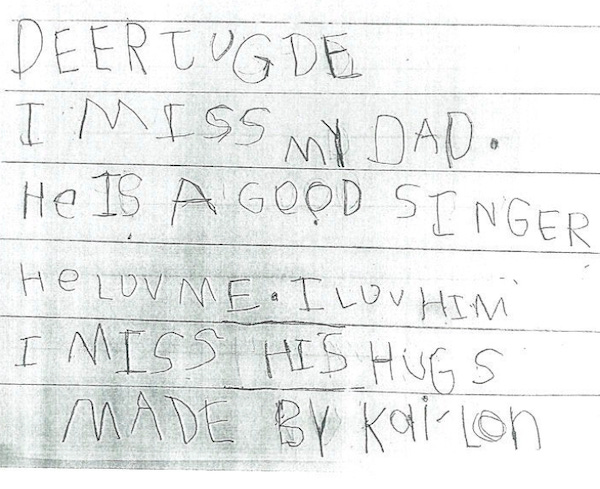 DEER JUGDE
I MISS MY DAD.
He IS A GOOD SINGER
He LOV ME. I LUV HIM
I MISS HIS HUGS
MADE BY Kai-Lon